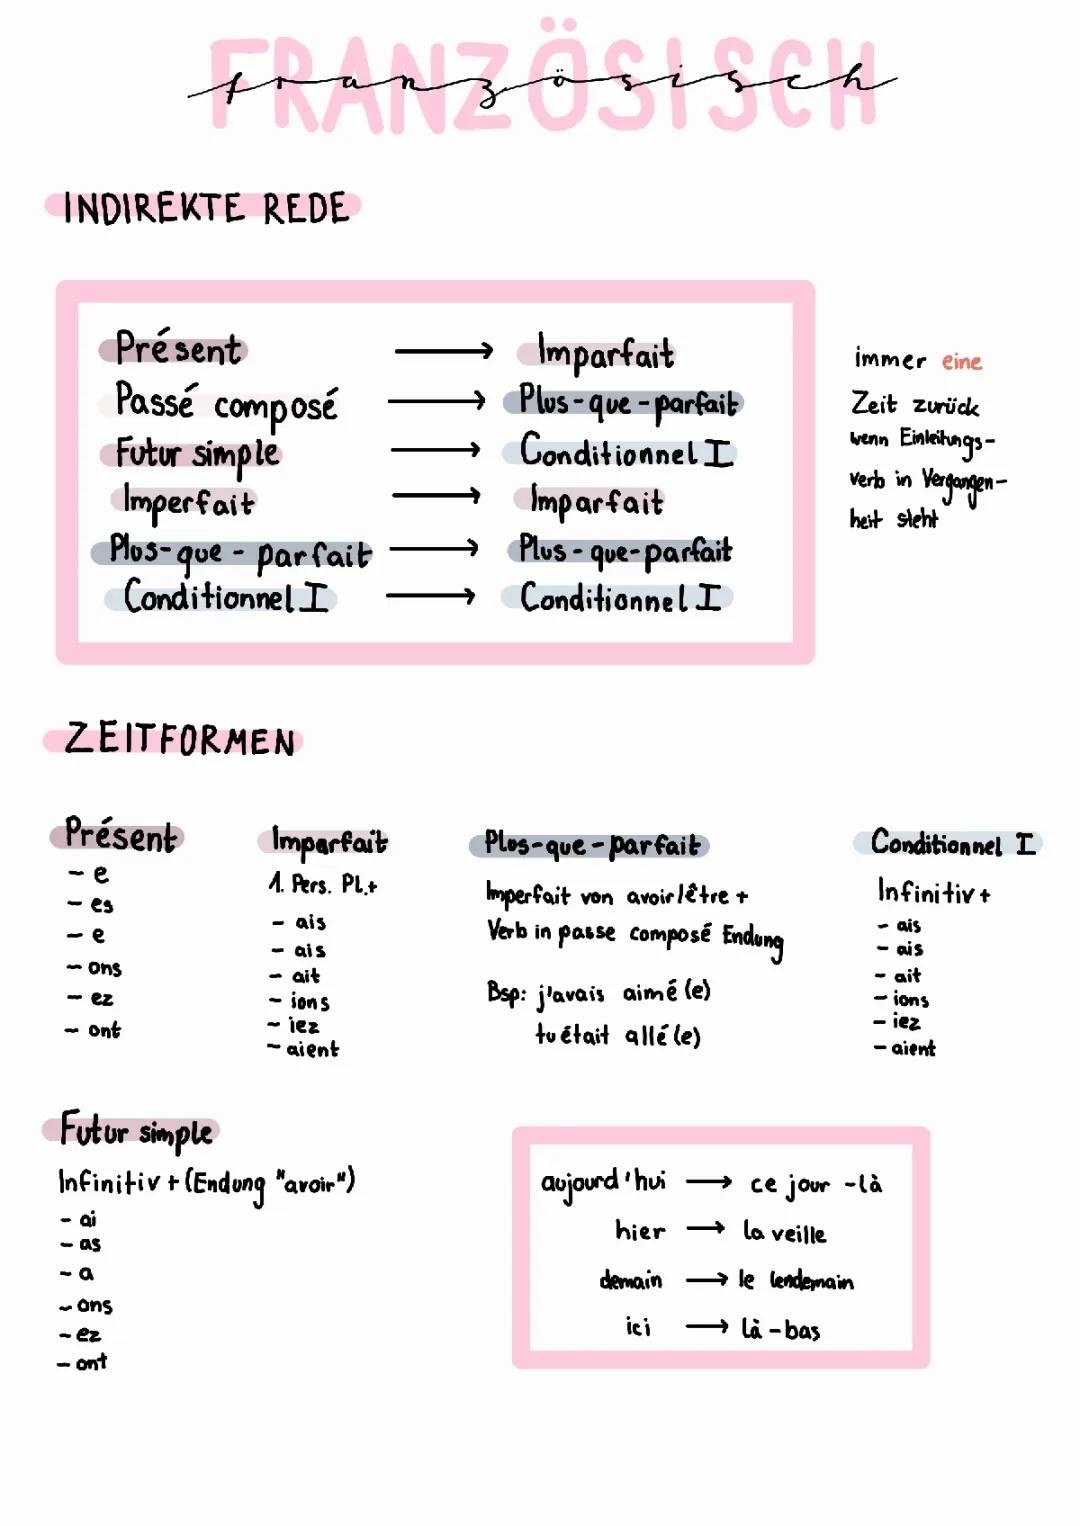 FRANZÖSISCH
französisch
INDIREKTE REDE
Présent → Imparfait
Passé composé → Plus-que-parfait
Futur simple → Conditionnel I
Imperfait → Imparfait
Plus-que-parfait → Plus-que-parfait
Conditionnel I → Conditionnel I
immer eine
Zeit zurück
wenn Einleitungs-
verb in Vergangen-
heit steht
ZEITFORMEN
Présent
- e
- es
- e
- ons
- ez
- ont
Imparfait
1. Pers. Pl.+
- ais
- ais
- ait
- ions
- iez
- aient
Plus-que-parfait
Imperfait von avoir/être +
Verb in passe composé Endung
Bsp: j'avais aimé(e)
tu était allé(e)
Conditionnel I
Infinitiv+
- ais
- ais
- ait
- ions
- iez
- aient
Futur simple
Infinitiv + (Endung "avoir")
- ai
- as
- a
- ons
- ez
- ont
aujourd'hui → ce jour-là
hier → la veille
demain → le lendemain
ici → là-bas